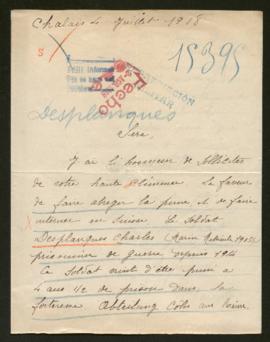 Chalais 4 Juillet 1918
S
15395
Desplanques
Sire
J'ai l'honneur de solliciter
de votre haute clémence la faveur
de faire abréger la peine et de faire
interner en Suisse le soldat
Desplanques Charles
prisonnier de guerre depuis 1914
Ce soldat vient d'être puni à
4 ans 1/2 de prison dans la
forteresse Abteilung Cöln